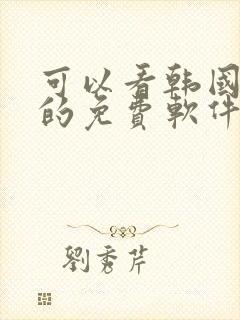 可以看韩國
的免費軟件
劉秀芹